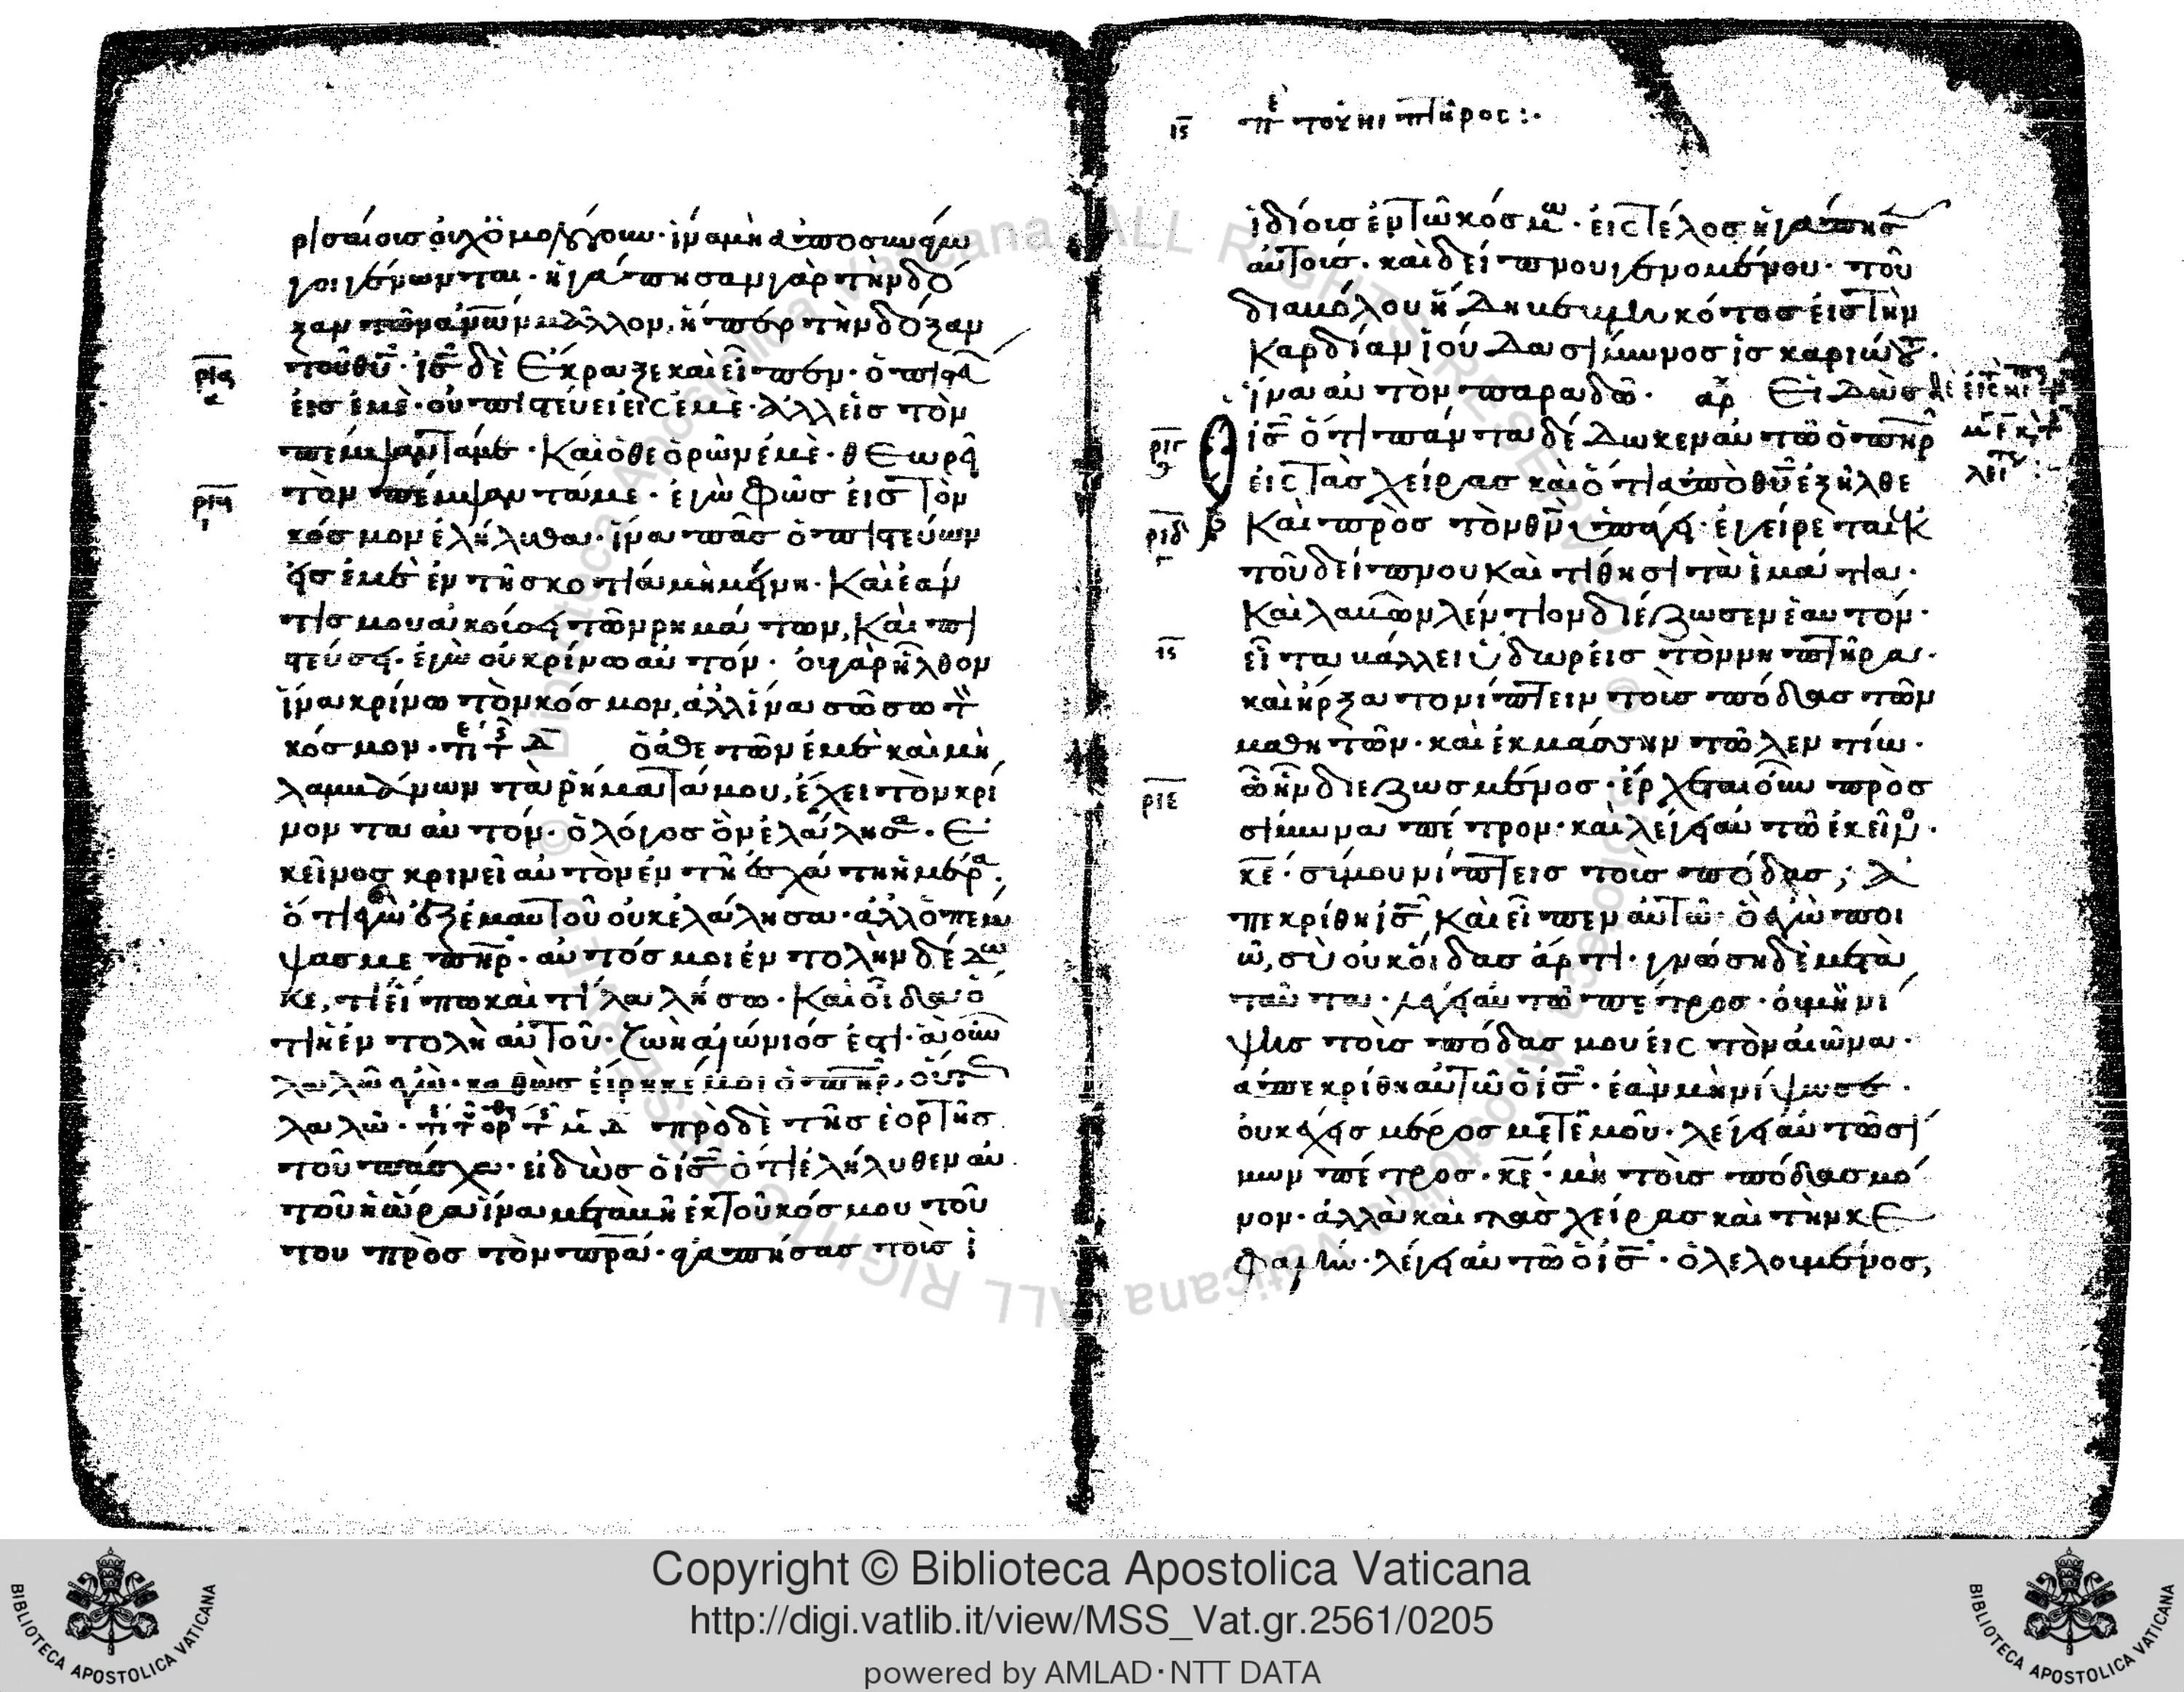 ρισαίοις οὐχ ὁμολόγουν· ἵνα μὴ ἀποσυνάγω
γοι γένωνται· ἠγάπησαν γὰρ τὴν δό
ξαν τῶν ἀνων μᾶλλον, ἤπερ τὴν δόξαν
τοῦ θυ· ις δὲ ἔκραξε καὶ εἶπεν· ὁ πιστεύων
εἰς ἐμὲ· οὐ πιστεύει εἰς ἐμὲ· ἀλλ εἰς τὸν
πέμψαντά με· καὶ ὁ θεορῶν ἐμὲ· θεωρεῖ
τὸν πέμψαντά με· ἐγὼ φῶς εἰς τὸν
κόσμον ἐλήλυθα· ἵνα πᾶς ὁ πιστεύων
εἰς ἐμὲ ἐν τῇ σκοτία μὴ μείνη· καὶ ἐάν
τίς μου ἀκούσει τῶν ρημάτων, καὶ πι
στεύσει· ἐγὼ οὐ κρίνω αὐτόν· οὐ γὰρ ἦλθον
ἵνα κρίνω τὸν κόσμον, ἀλλ ἵνα σώσω τὸν
κόσμον· ὁ ἀθετῶν ἐμὲ καὶ μὴ
λαμβάνων τὰ ρήματά μου, ἔχει τὸν κρί
νοντα αὐτόν· ὁ λόγος ὃν ἐλάλησα· ἐ
κεῖνος κρινεῖ αὐτὸν ἐν τῇ ἐσχάτη ἡμέρα·
ὅτι ἐγὼ ἐξ ἐμαυτοῦ οὐκ ἐλάλησα· ἀλλ ὁ πέμ
ψας με πηρ· αὐτός μοι ἐντολὴν δέδω
κε, τί εἴπω καὶ τί λαλήσω· καὶ οἶδα ὅ
τι ἡ ἐντολὴ αὐτοῦ· ζωὴ αἰώνιός ἐστι· ἃ οὖν
λαλῶ ἐγὼ· καθὼς εἴρηκέ μοι ὁ πηρ, οὕτως
λαλῶ· πρὸ δὲ τῆς ἑορτῆς
τοῦ πάσχα· εἰδὼς ὁ ις ὅτι ἐλήλυθεν αὐ
τοῦ ἡ ὥρα ἵνα μεταβῇ ἐκ τοῦ κόσμου τού
του πρὸς τὸν πρα· ἀγαπήσας τοὺς ἰ
ιϛ πε του νιπτηρος:·
ἰδίους ἐν τῶ κόσμω· εἰς τέλος ἠγάπησεν
αὐτούς· καὶ δείπνου γενομένου· τοῦ
διαβόλου ἤδη βεβληκότος εἰς τὴν
καρδίαν ἰούδα σίμωνος ἰσκαριώτου·
ἵνα αὐτὸν παραδῶ· αρ Εἰδὼς
ις ὅτι πάντα δέδωκεν αὐτῶ ὁ πηρ
εἰς τὰς χείρας καὶ ὅτι ἀπὸ θυ ἐξῆλθε
καὶ πρὸς τὸν θν ὑπάγει· ἐγείρεται ἐκ
τοῦ δείπνου καὶ τίθησι τὰ ἱμάτια·
καὶ λαβὼν λέντιον διέζωσεν ἑαυτόν·
εἶτα βάλλει ὕδωρ εἰς τὸν νιπτῆρα·
καὶ ἤρξατο νίπτειν τοὺς πόδας τῶν
μαθητῶν· καὶ ἐκμάσσην τῶ λεντίω·
ὧ ἦν διεζωσμένος· ἔρχεται οὖν πρὸς
σίμωνα πέτρον· καὶ λέγει αὐτῶ ἐκεῖνος·
κε· σύ μου νίπτεις τοὺς πόδας; ἀ
πεκρίθη ις καὶ εἶπεν αὐτῶ· ὃ ἐγὼ ποι
ῶ, σὺ οὐκ οἶδας ἄρτι· γνώση δὲ μετὰ
ταῦτα· λέγει αὐτῶ πέτρος· οὐ μὴ νί
ψης τοὺς πόδας μου εἰς τὸν αἰῶνα·
ἀπεκρίθη αὐτῶ ὁ ις· ἐὰν μὴ νίψω σε·
οὐκ ἔχεις μέρος μετ ἐμοῦ· λέγει αὐτῶ σί
μων πέτρος· κε· μὴ τοὺς πόδας μό
νον· ἀλλὰ καὶ τὰς χείρας καὶ τὴν κε
φαλήν· λέγει αὐτῶ ὁ ις· ὁ λελουμένος,
Copyright © Biblioteca Apostolica Vaticana
http://digi.vatlib.it/view/MSS_Vat.gr.2561/0205
powered by AMLAD·NTT DATA
BIBLIOTECA APOSTOLICA VATICANA
BIBLIOTECA APOSTOLICA VATICANA